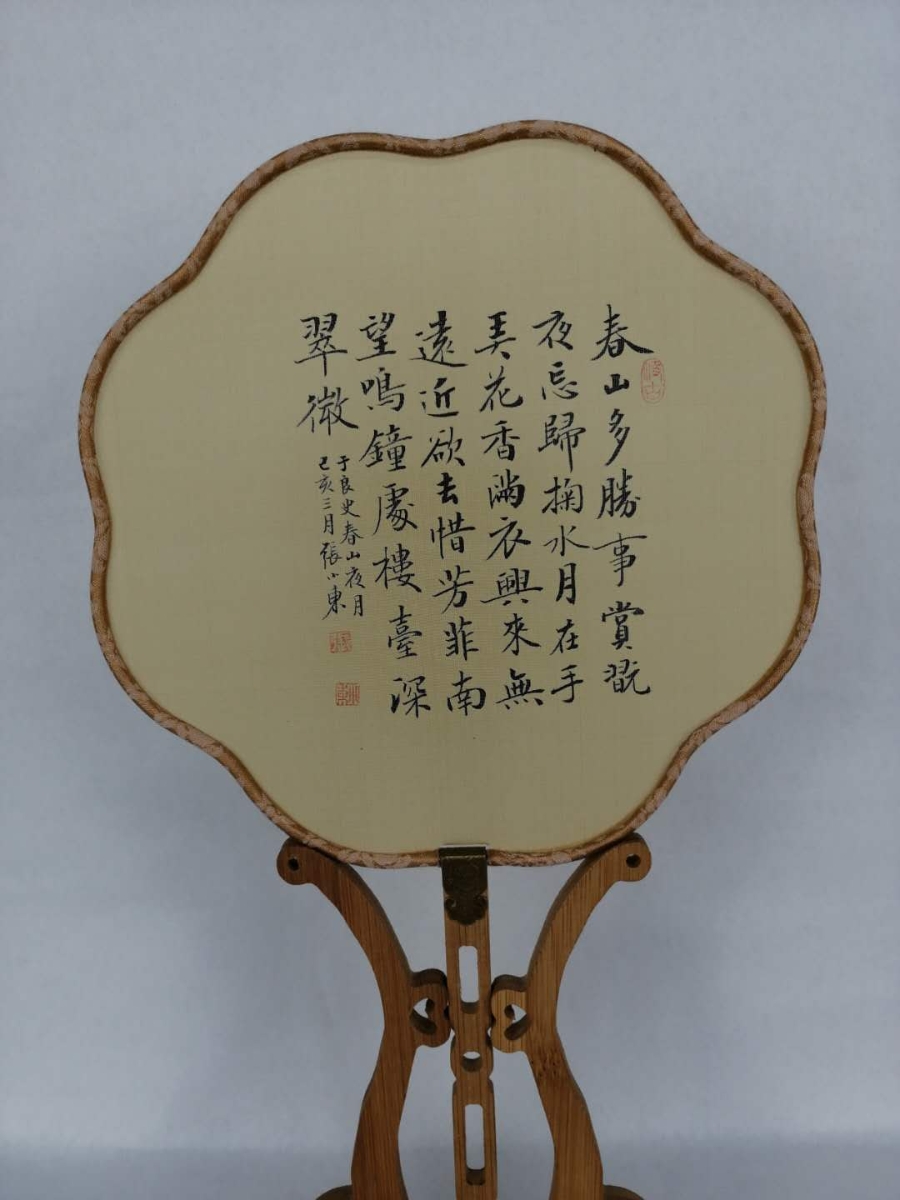 春山多勝事賞翫
夜忘歸掬水月在手
弄花香滿衣興來無
遠近欲去惜芳菲南
望鳴鐘處樓臺深
翠微
于良史春山夜月
己亥三月張小東